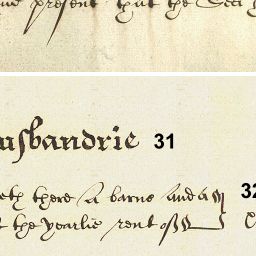 present that the
usbandrie 31
eth there A barne and a 32
t the yearlie rent of